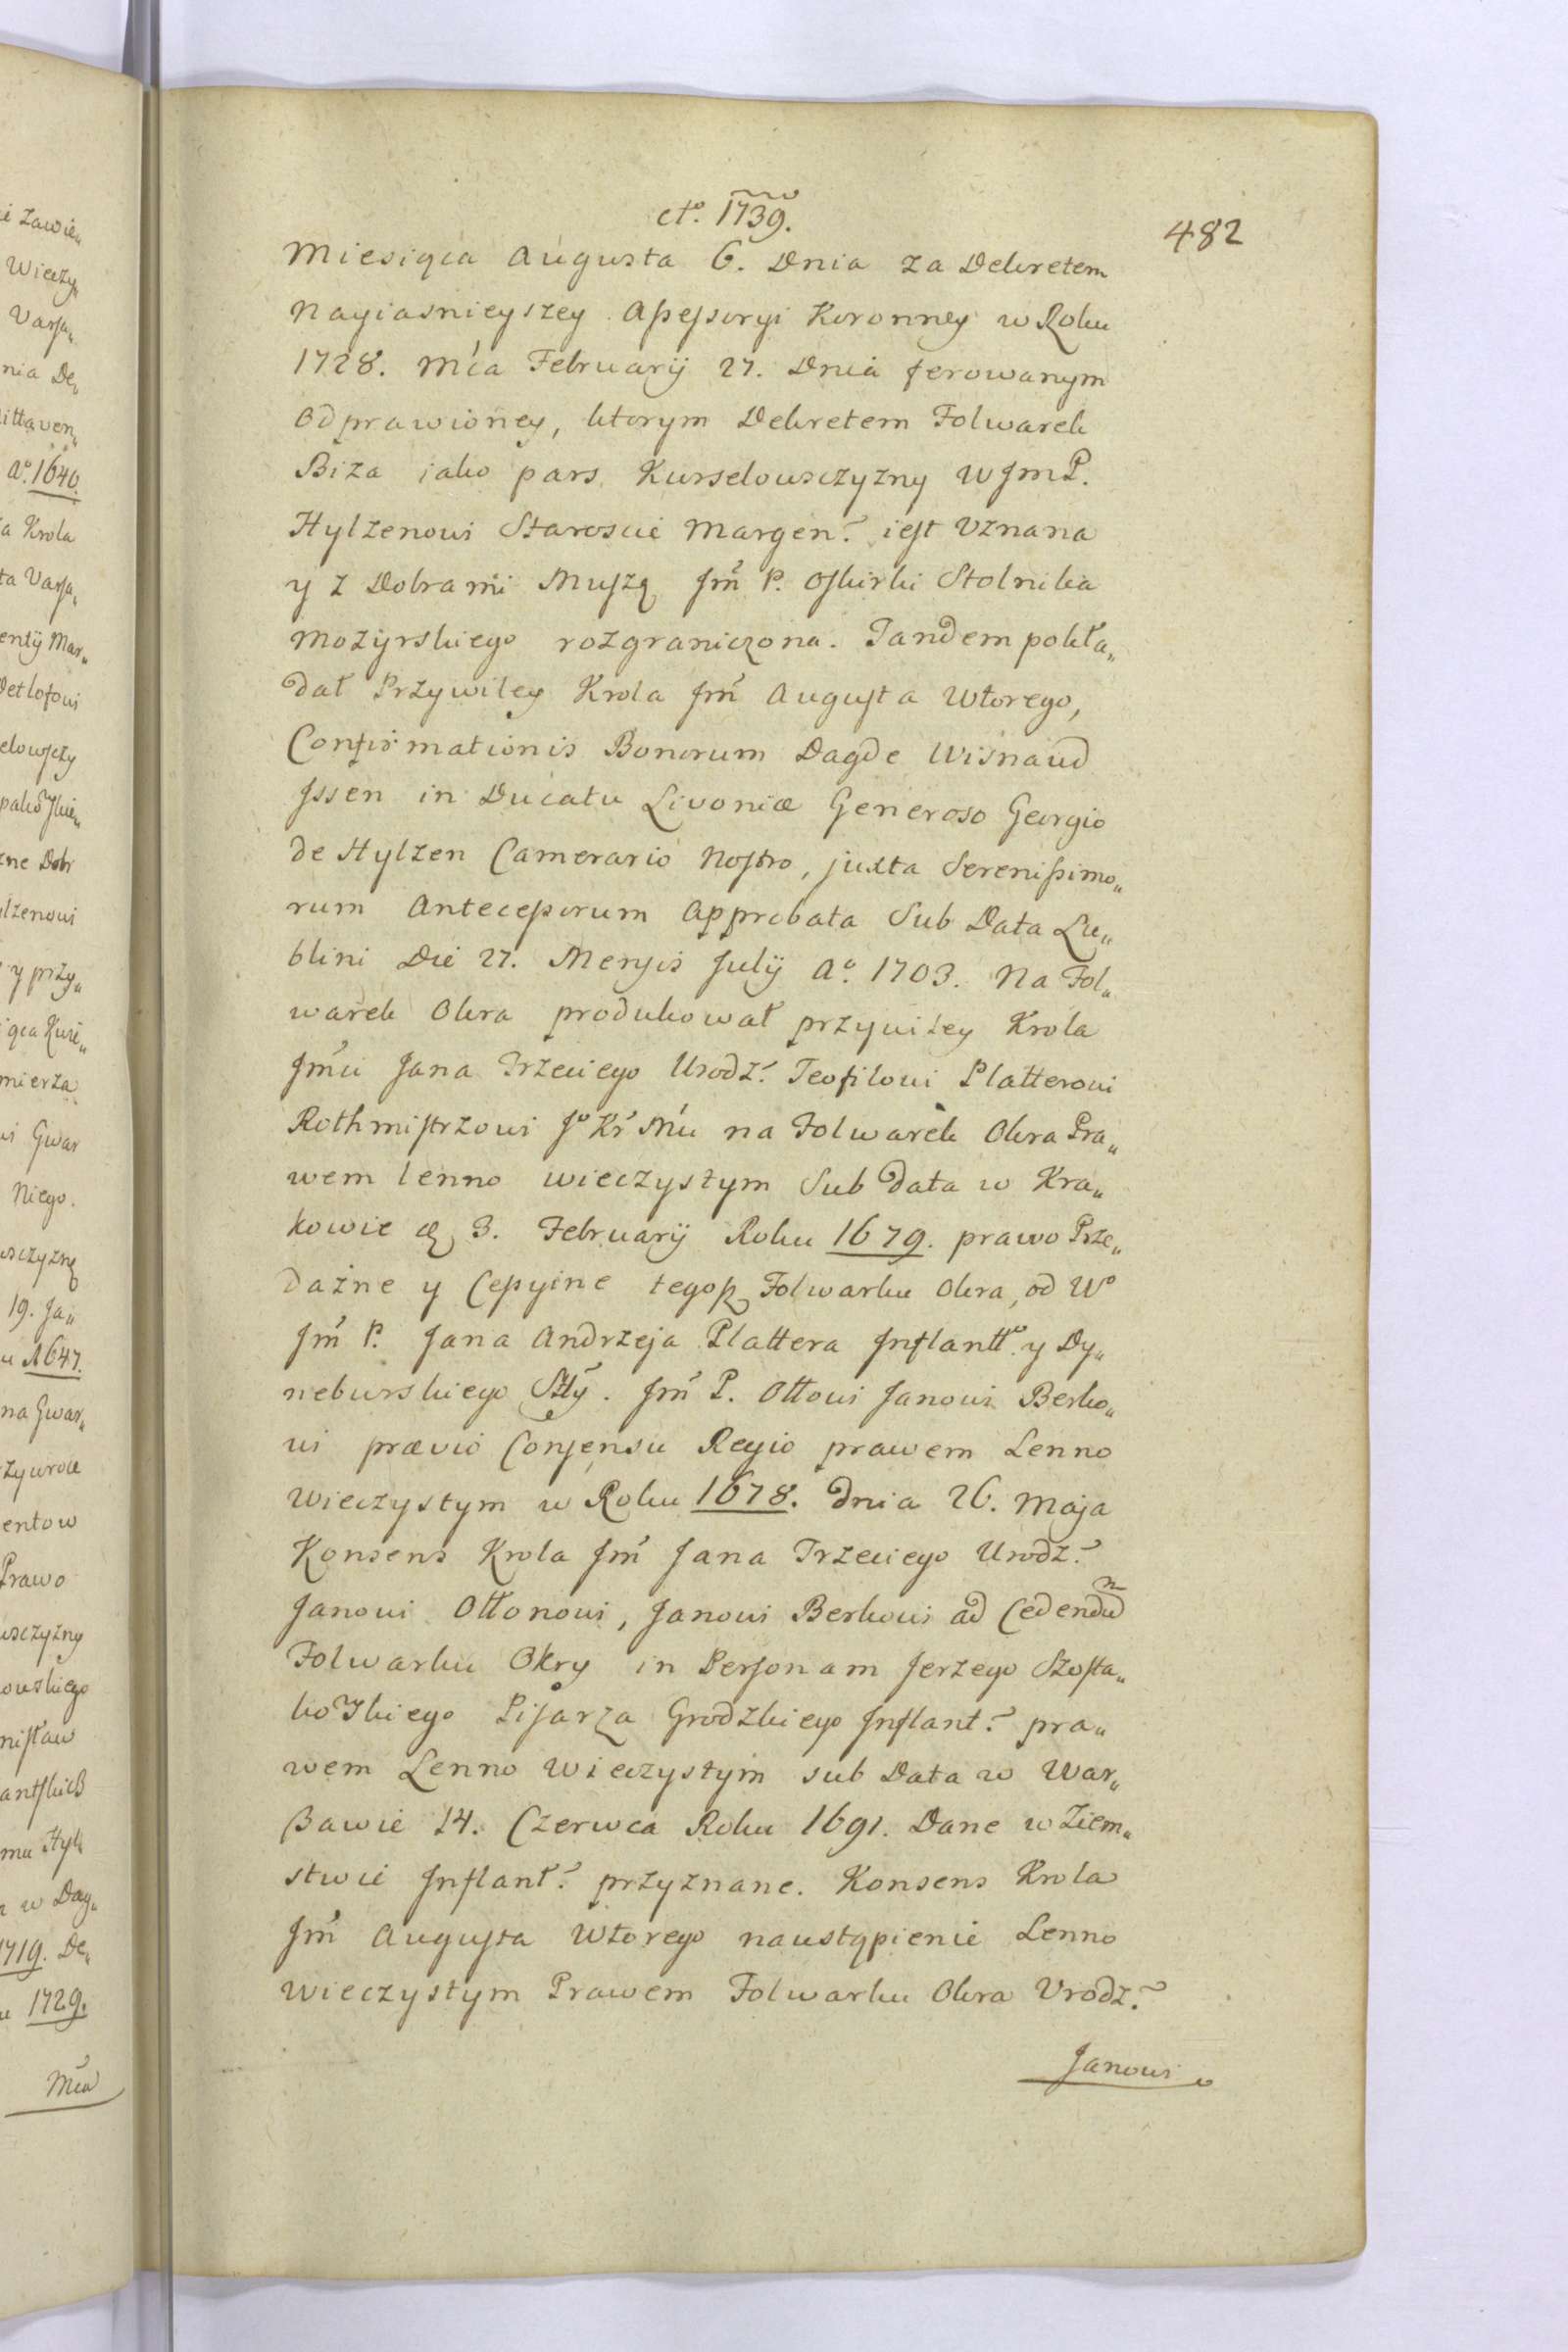 cto. 1739.
482
Miesiąca Augusta 6. Dnia za Dekretem
Nayiasnieyszey Assessoryi Koronney w Roku
1728. Mca February 27. Dnia ferowanym
odprawioney, ktorym Dekretem Folwarek
Biza iako pars Kurselowsczyzny WJmP.
Hylzenowi Staroscie Margen: iest Uznana
y z Dobrami Muszą Jm P. Oskirki Stolnika
Mozyrskiego rozgraniczona. Tandem pokła„
dał Przywiley Krola Jm Augusta Wtorego,
Confirmationis Bonorum Dagde Wisnaud
Jssen in Ducatu Livoniæ Generoso Georgio
de Hylzen Camerario Nostro, juxta Serenissimo„
rum Antecessorum Approbata Sub Data Lu„
blini Die 27. Mensis July Ao. 1703. Na Fol„
warek Okra produkował przywiley Krola
Jmci Jana Trzeciego Urodz: Teofilowi Platterowi
Rothmistrzowi Jo Kr Mci na Folwarek Okra Pra„
wem lenno wieczystym Sub Data w Kra„
kowie 3. February Roku 1679. prawo Prze„
dażne y Cessyine tegosz Folwarku Okra, od Wo
Jm P. Jana Andrzeja Plattera Inflantt. y Dy„
neburskiego Stty. Jm P. Ottowi Janowi Berko„
wi prævio Consensu Regio prawem Lenno
Wieczystym w Roku 1678. Dnia 26. Maja
Konsens Krola Jm Jana Trzeciego Urodz:
Janowi Ottonowi, Janowi Berkowi ad Cedendu
Folwarku Okry in Personam Jerzego Szosta„
kowskiego Pisarza Grodzkiego Inflant: pra„
wem Lenno Wieczystym sub Data w War„
szawie 14. Czerwca Roku 1691. Dane w Ziem„
stwie Inflant: przyznane. Konsens Krola
Jm Augusta Wtorego naustąpienie Lenno
Wieczystym Prawem Folwarku Okra Urodz:
Janowi
i Zawie„
Wieczy„
Varsa„
nia De„
Ao. 1640.
a Krola
ta Varsa„
Detlofowi
zne Dobr
ylzenowi
y przy„
mierza
wi Gwar
Niego.
wsczyznę
19. Ja„
u 1647.
na Gwar„
entow
Prawo
wsczyzny
owskiego
nisław
antskich
mu Hyl„
w Dag„
1719. De„
u 1729.
Mca